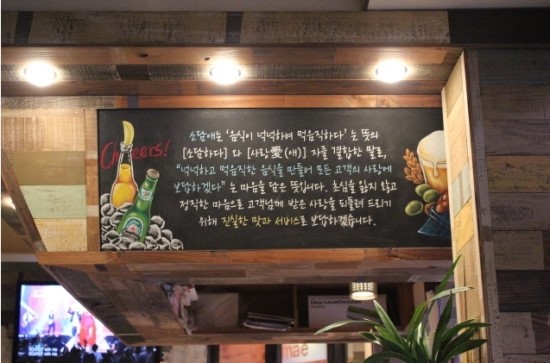 Cheers!
소담애는 '음식이 넉넉하며 먹음직하다' 는 뜻의
[소담하다] 와 [사랑愛(애)] 자를 결합한 말로,
"넉넉하고 먹음직한 음식을 만들어 모든 고객의 사랑에
보답하겠다" 는 마음을 담은 뜻입니다. 초심을 잃지 않고
정직한 마음으로 고객님께 받은 사랑을 되돌려 드리기
위해 진실한 맛과 서비스로 보답하겠습니다.
mae